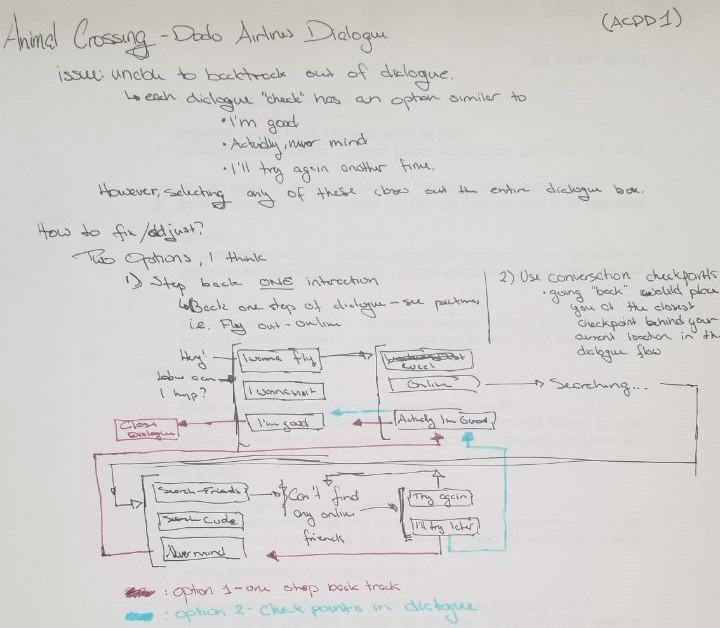 (ACPD1)
Animal Crossing - Dodo Airlines Dialogue
issue: unable to backtrack out of dialogue.
↳ each dialogue "check" has an option similar to
• I'm good
• Actually, never mind
• I'll try again another time.
However, selecting any of these closes out the entire dialogue box.
How to fix/adjust?
Two options, I think
1) Step back ONE interaction
↳ Back one step of dialogue - see pictures,
i.e. Fly out - online
2) Use conversation checkpoints
• going "back" would place
you at the closest
checkpoint behind your
current location in the
dialogue flow
Hey!
how can
I hyp?
I wanna fly
I wanna visit
I'm good
Close
Dialogue
Local
Online
Actually I'm Good
Searching...
Search-Friends
Search Code
Nevermind
Can't find
any online
friends
Try again
I'll try later
: option 1 - one step back track
: option 2 - Check points in dialogue